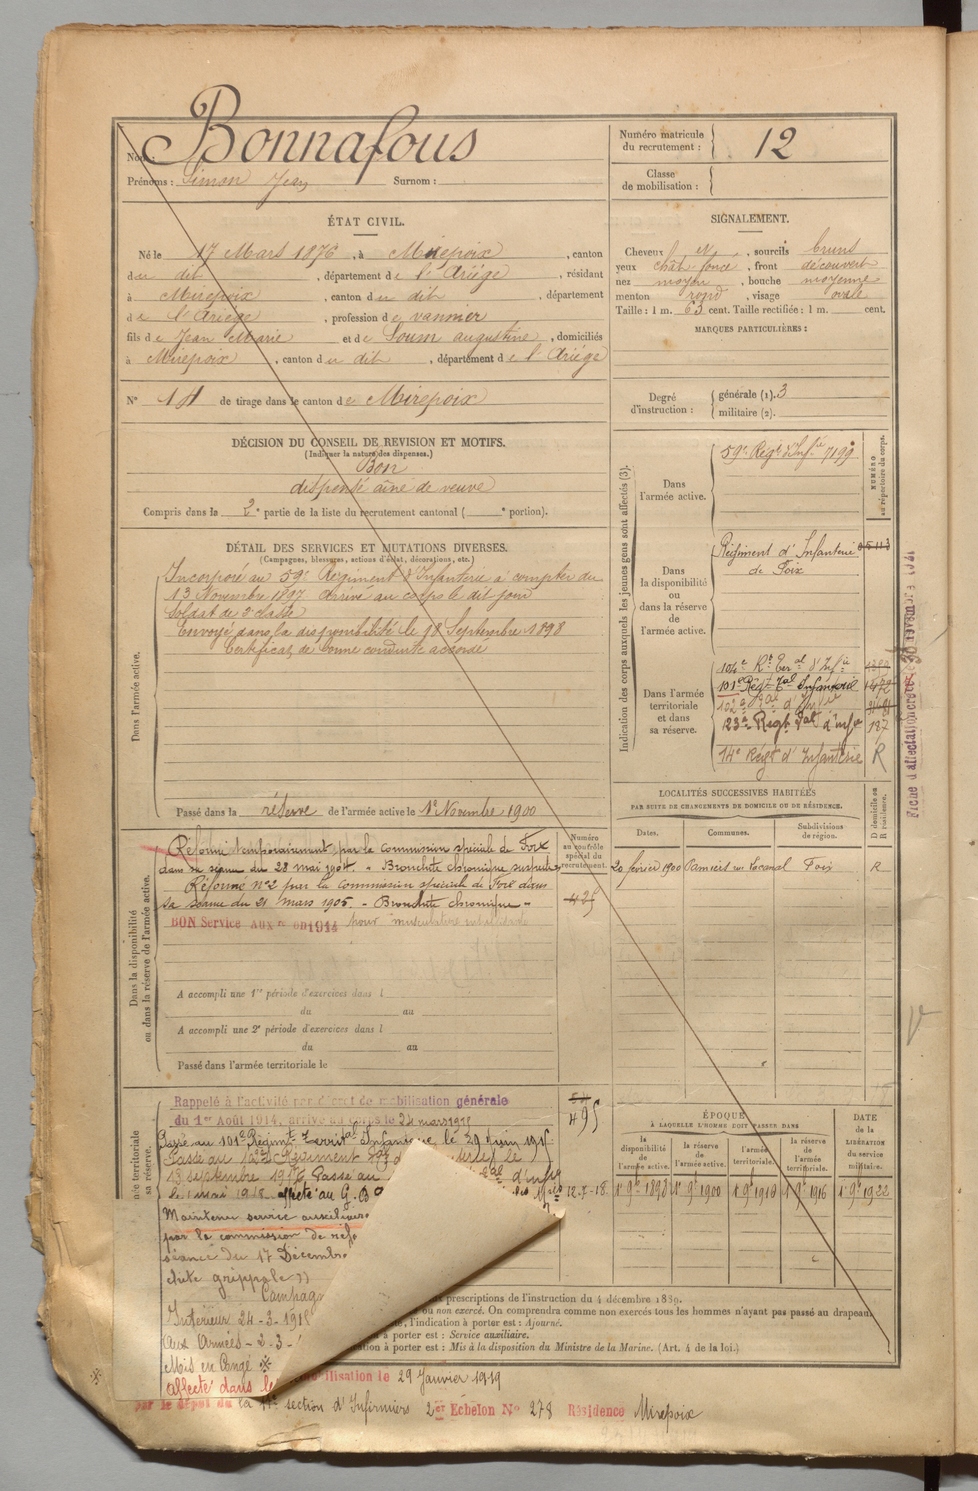 Nom : Bonnafous
Prénoms : Simon Jean Surnom :
Numéro matricule du recrutement : 12
Classe de mobilisation :
ÉTAT CIVIL.
Né le 17 Mars 1876, à Mirepoix, canton
du dit, département de l'Ariége, résidant
à Mirepoix, canton du dit, département
de l'Ariège, profession de vannier
fils de Jean Marie et de Soum augustine, domiciliés
à Mirepoix, canton du dit, département de l'Ariége
N° 18 de tirage dans le canton de Mirepoix
SIGNALEMENT.
Cheveux N, sourcils bruns
yeux chât. foncé, front découvert
nez moyen, bouche moyenne
menton rond, visage ovale
Taille : 1 m. 63 cent. Taille rectifiée : 1 m. cent.
MARQUES PARTICULIÈRES :
Degré d'instruction : générale (1). 3
militaire (2).
DÉCISION DU CONSEIL DE REVISION ET MOTIFS.
(Indiquer la nature des dispenses.)
Bon
dispensé aîné de veuve
Compris dans la 2e partie de la liste du recrutement cantonal ( e portion).
DÉTAIL DES SERVICES ET MUTATIONS DIVERSES.
(Campagnes, blessures, actions d'éclat, décorations, etc.)
Dans l'armée active.
Incorporé au 59e Régiment d'Infanterie à compter du
13 Novembre 1897 arrivé au corps le dit jour
Soldat de 2e classe
Envoyé dans la disponibilité le 18 Septembre 1898
Certificat de bonne conduite accordé
Passé dans la réserve de l'armée active le 1er Novembre 1900
Indication des corps auxquels les jeunes gens sont affectés (3).
NUMÉRO au répertoire du corps.
Dans l'armée active.
59e Régt d'Infie 7199
Dans la disponibilité ou dans la réserve de l'armée active.
Régiment d'Infanterie
de Foix
Dans l'armée territoriale et dans sa réserve.
104e Rt Teral d'Infie
101e Régt Tal Infanterie
102e
23e Regt Tal d'infie 187
14e Régt d'Infanterie R
Fiche d'affectation
LOCALITÉS SUCCESSIVES HABITÉES
PAR SUITE DE CHANGEMENTS DE DOMICILE OU DE RÉSIDENCE.
Dates. Communes. Subdivisions de région. D domicile ou R résidence.
20 février 1900 Pamiers Foix R
Dans la disponibilité ou dans la réserve de l'armée active.
Numéro au contrôle spécial du recrutement.
Réformé temporairement par la commission spéciale de Foix
dans sa séance du 28 mai 1904. - Bronchite chronique suspecte
Réformé n°2 par la commission spéciale de Foix dans
sa séance du 21 mars 1905. - Bronchite chronique -
BON Service Auxre en 1914 pour musculature
A accompli une 1re période d'exercices dans l
du au
A accompli une 2e période d'exercices dans l
du au
Passé dans l'armée territoriale le
Rappelé à l'activité par décret de mobilisation générale
du 1er Août 1914, arrivé au corps le 24 mars 1915
495
Passé au 101e Régiment Territal Infanterie le 29 Juin 1915
Passé au 102e Régiment
13 septembre 1917 Passé au
le 1 mai 1918 affecté au G. B
12-7-18
Maintenu service auxiliaire
par la commission de réfo
séance du 17 Décembre
chite grippale »
Campag
Intérieur 24-3-1915
Aux Armées - 2-3-
Mis en Congé
Affecté dans le
mobilisation le 29 Janvier 1919
par le dépôt de la section d'Infirmiers 2er Echelon N° 278 Résidence Mirepoix
ÉPOQUE
À LAQUELLE L'HOMME DOIT PASSER DANS
la disponibilité de l'armée active. la réserve de l'armée active. l'armée territoriale. la réserve de l'armée territoriale.
DATE de la LIBÉRATION du service militaire.
1er 9bre 1898 1er 9bre 1900 1er 9bre 1910 1er 9bre 1916 1er 9bre 1922
prescriptions de l'instruction du 4 décembre 1889.
ou non exercé. On comprendra comme non exercés tous les hommes n'ayant pas passé au drapeau.
l'indication à porter est : Ajourné.
à porter est : Service auxiliaire.
à porter est : Mis à la disposition du Ministre de la Marine. (Art. 4 de la loi.)